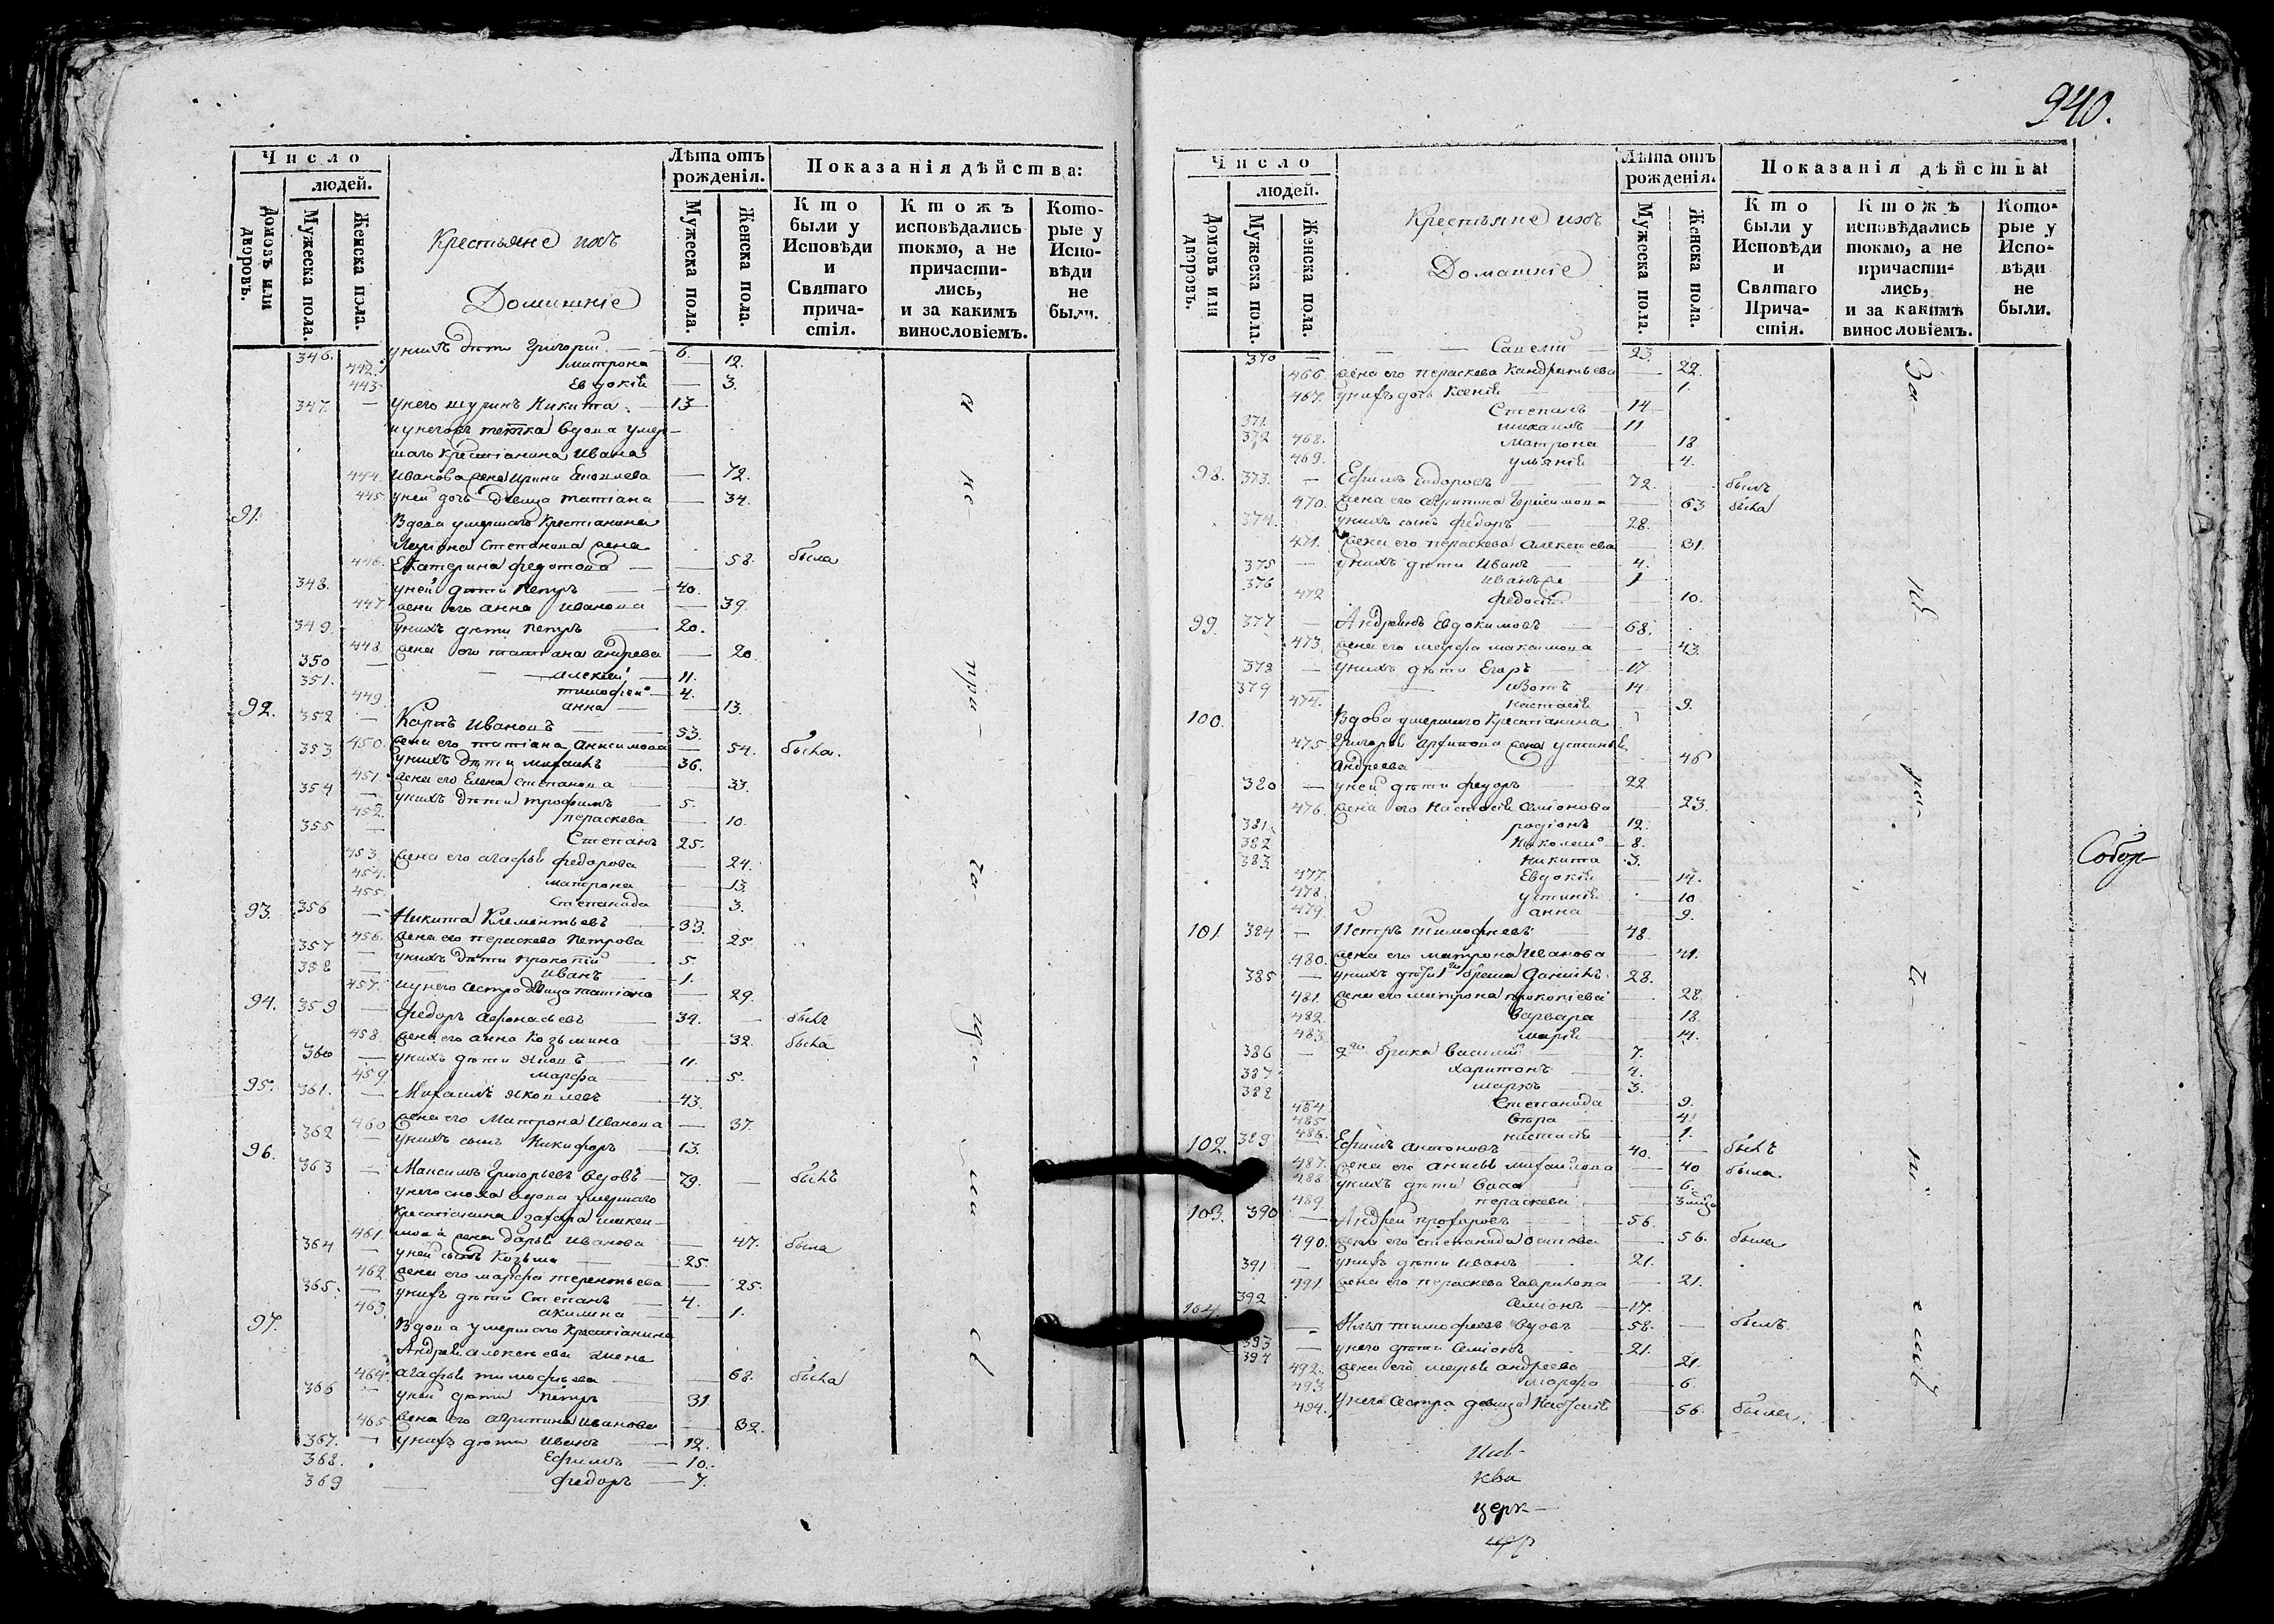 940.
Число
людей.
Домовъ или дворовъ.
Мужеска пола.
Женска пола.
Крестьяне ихъ
Домашніе
Лѣта отъ рожденія.
Мужеска пола.
Женска пола.
Показанія дѣйства:
Кто были у Исповѣди и Святаго причастія.
Ктожъ исповѣдались токмо, а не причастились, и за какимъ винословіемъ.
Которые у Исповѣди не были.
346. унихъ дѣти Григорій 6.
442. матрона 12.
443 Евдокія 3.
347. унего шуринъ Никита 13
вдова умер-
шаго крестіанина Ивана
444. Иванова жена Ирина 72.
445 уней дочь девица татіана 34.
91. Вдова умершаго Крестіанина
Степанова жена
446. Екатерина федотова 58. была
348. уней дѣти петръ 40.
447 жена его анна Иванова 39.
349. унихъ дѣти петръ 20.
448. жена его татіана андреева 20.
350 алексѣй 11.
351. тимофей 4.
449. анна 13.
92. 352 Карпъ Ивановъ 53.
450. жена его татіана анисимова 54. была.
353 унихъ дѣти михаилъ 36.
451. жена его Елена степанова 33.
354 унихъ дѣти трофимъ 5.
452. пераскева 10.
355 Степанъ 25.
453. жена его агафья федорова 24.
454. матрона 13.
455. степанида 3.
93. 356 Никита Клементьевъ 33.
456. жена его пераскева петрова 25.
357 унихъ дѣти прокопій 5
358 Иванъ 1.
457. унего сестра девица татіана 29.
94. 359 федоръ афонасьевъ 34. былъ
458. жена его анна Козьмина 32. была
360 унихъ дѣти 11.
459. марфа 5.
95. 361. Михаилъ Яковлевъ 43.
460 жена его Матрона Иванова 37.
362 унихъ сынъ Никифоръ 13.
96. 363 Максимъ Григорьевъ вдовъ 79. былъ
унего сноха вдова умершаго
крестіанина
461. жена дарья Иванова 47. была
364 уней сынъ Козьма 25.
462. жена его марфа терентьева 25.
365. унихъ дѣти Степанъ 4.
463. акилина 1.
97. Вдова умершаго крестіанина
Андрея алексѣева жена
464. агафья тимофѣева 68. была
366 уней дѣти петръ 31
465 жена его агрипина Иванова 32.
367. унихъ дѣти Иванъ 12.
368. Ефимъ 10.
369 федоръ 7.
а не при-
ча-
сти-
ли
сь
Число
людей.
Домовъ или дворовъ.
Мужеска пола.
Женска пола.
Крестьяне ихъ
Домашніе
Лѣта отъ рожденія.
Мужеска пола.
Женска пола.
Показанія дѣйства:
Кто были у Исповѣди и Святаго Причастія.
Ктожъ исповѣдались токмо, а не причастились, и за какимъ винословіемъ.
Которые у Исповѣди не были.
370 Савелій 23.
466. жена его пераскева Кандратьева 22.
467. унихъ дочь Ксенія 1.
371. Степанъ 14
372 михаилъ 11
468. матрона 18
469. ульянія 4.
98. 373. Ефимъ 72. былъ
470. жена его агрипина 63 была
374. унихъ сынъ федоръ 28.
471. жена его пераскева алексѣева 31.
375 унихъ дѣти Иванъ 4.
376 Иванъ же 1
472 федосія 10.
99. 377 Андрей Евдокимовъ 68.
473. жена его марфа максимова 43.
378 унихъ дѣти Егоръ 17
379 изотъ 14
474. настасія 9.
100. Вдова умершаго Крестіанина
475. Григорья архипова жена устинья
андреева 46
380 уней дѣти федоръ 22
476. жена его настасія семіонова 23.
381. родіонъ 12.
382 Николай 8.
383 Никита 3.
477. Евдокія 14.
478. устинія 10
479. анна 9.
101. 384 Петръ тимофѣевъ 48.
480. жена его матрона Иванова 41.
385 унихъ дѣти 1го брака данилъ 28.
481. жена его матрона прокопіева 28.
482. варвара 18.
483. марія 14.
386 2го брака василій 7.
387 харитонъ 4.
388 маркъ 3.
484 Степанида 9.
485 4.
486. настасія 1.
102. 389 Ефимъ антоновъ 40. былъ
487. жена его михайлова 40 была.
488 унихъ дѣти васа 6.
489. пераскева
103. 390 Андрей 56.
490. жена его степанида осипова 56. была
391 унихъ дѣти Иванъ 21.
491. жена его пераскева гаврилова 21.
392 Семіонъ 17.
104. 393 Илья тимофеевъ вдовъ 58. былъ.
394 унего дѣти Семіонъ 21.
492. жена его марья андреева 21.
493 марфа 6.
494. унего сестра девица 56. была.
За
Собор-
церк-